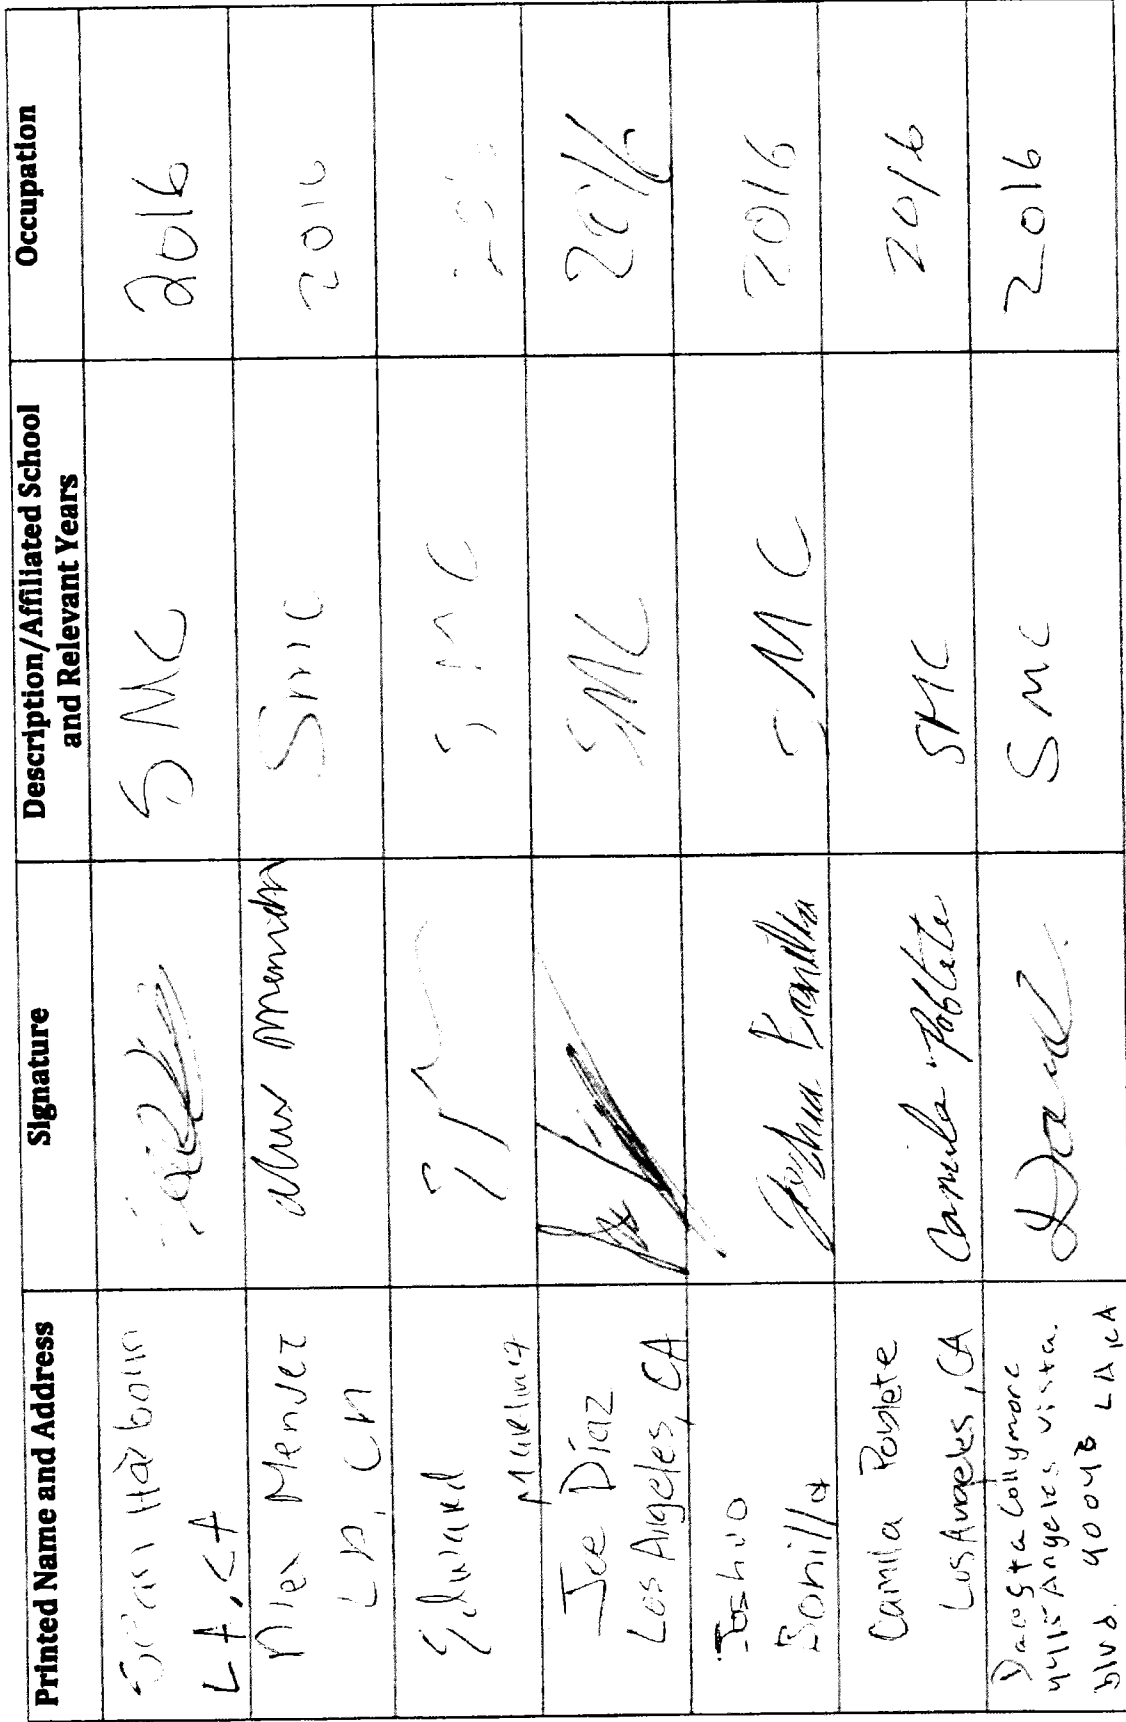 Printed Name and Address
Signature
Description/Affiliated School
and Relevant Years
Occupation
LA, CA
SMC
2016
Alex Mendez
LA, CA
Smc
2016
Edward
Martinez
SMC
Joe Díaz
Los Angeles, CA
SMC
2016
Joshua
Bonilla
Joshua Bonilla
SMC
2016
Camila Poblete
Los Angeles, CA
Camila Poblete
SMC
2016
Dacosta Collymore
4415 Angeles Vista.
blvd. 90043 LA, CA
Smc
2016